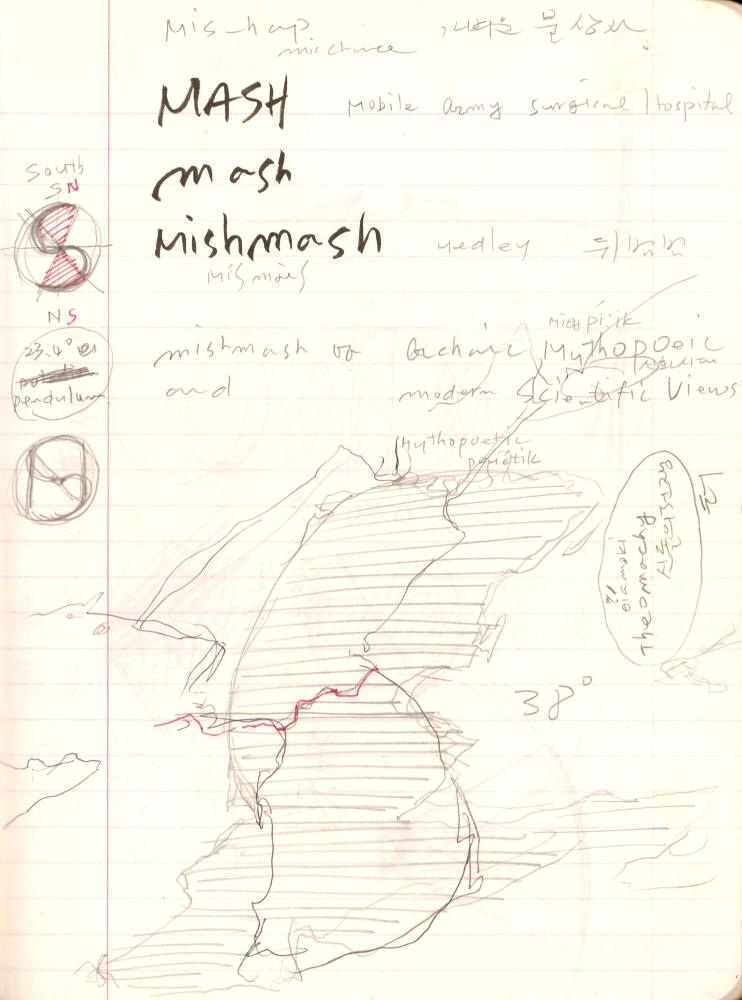 Mis-hap
mischance
MASH Mobile Army Surgical Hospital
mash
South
SN
Mishmash medley 뒤범벅
NS
23.4°
pendulum
mishmash of archaic Mythopoeic
and modern Scientific Views
Mythopoetic
Theomachy
38°